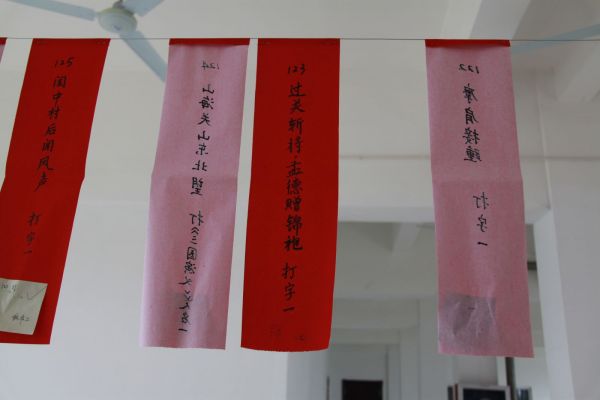 125 中村后闻风声 打字一
124 山海关山东北望 打《三国演义》人名一
123 过关斩将,孟德赠锦袍 打字一
122 摩肩接踵 打字一